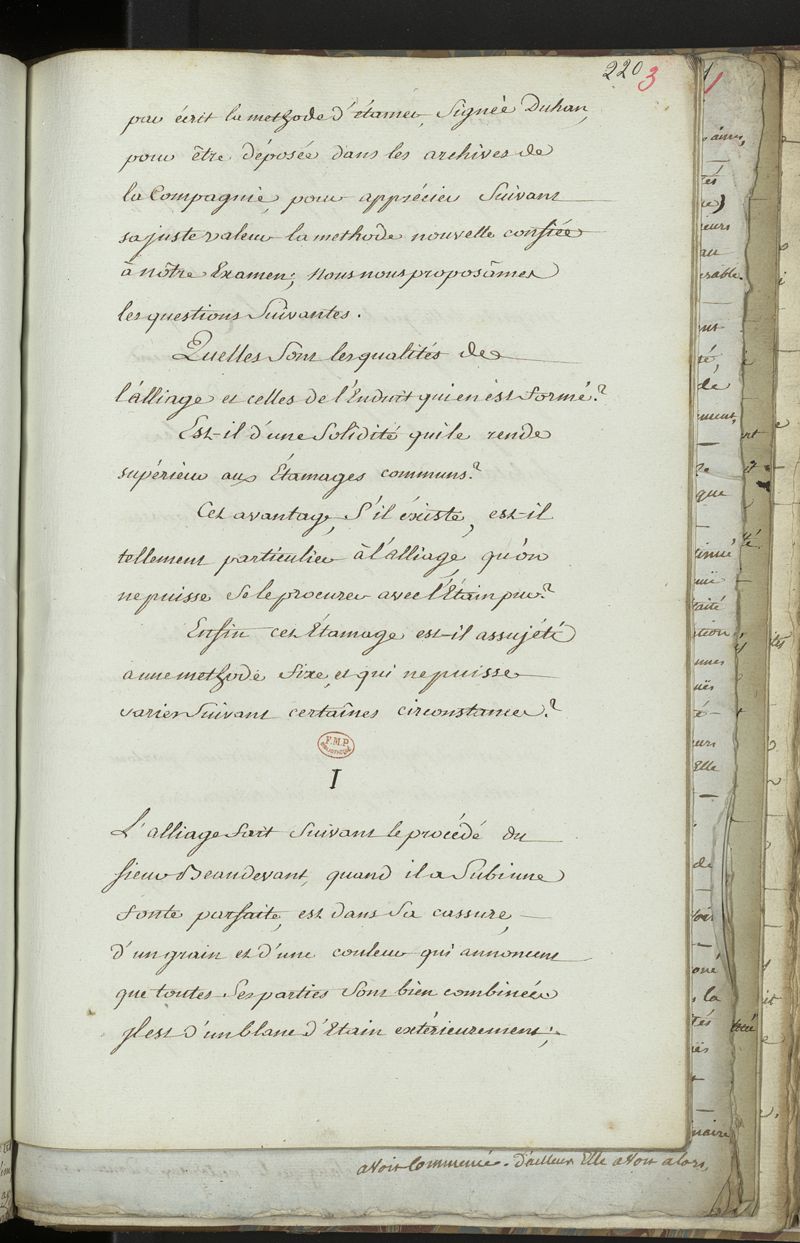 220 3
par écrit la methode d'étamer, Signée Duhan,
pour être déposée dans les archives de
la Compagnie, pour apprécier Suivant
sa juste valeur la methode nouvelle confiée
à nôtre Examen; Nous nous proposâmes
les questions Suivantes.
Quelles Sont les qualités de
l'álliage et celles de l'Enduit qui en est formé?
Est-il d'une Solidité qui le rende
supérieur aux Étamages communs?
Cet avantage, S'il éxiste, est-il
tellement particulier à l'alliage, qu'on
ne puisse se le procurer avec l'Étain pur?
Enfin cet Étamage est-il assujéti
a une methode fixe, et qui ne puisse
varier Suivant certaînes circonstances?
F.M.P.
BIBLIOTHÈQUE
I
L'alliage fait Suivant le procédé du
sieur Beaudevant, quand il a Subi une
fonte parfaite, est dans Sa cassure,
d'un grain et d'une couleur qui annoncent
que toutes Ses parties Sont bien combinées
Il est d'un blanc d'Etain extérieurement;
avoit Commencé. D'ailleurs Elle avoit alors,